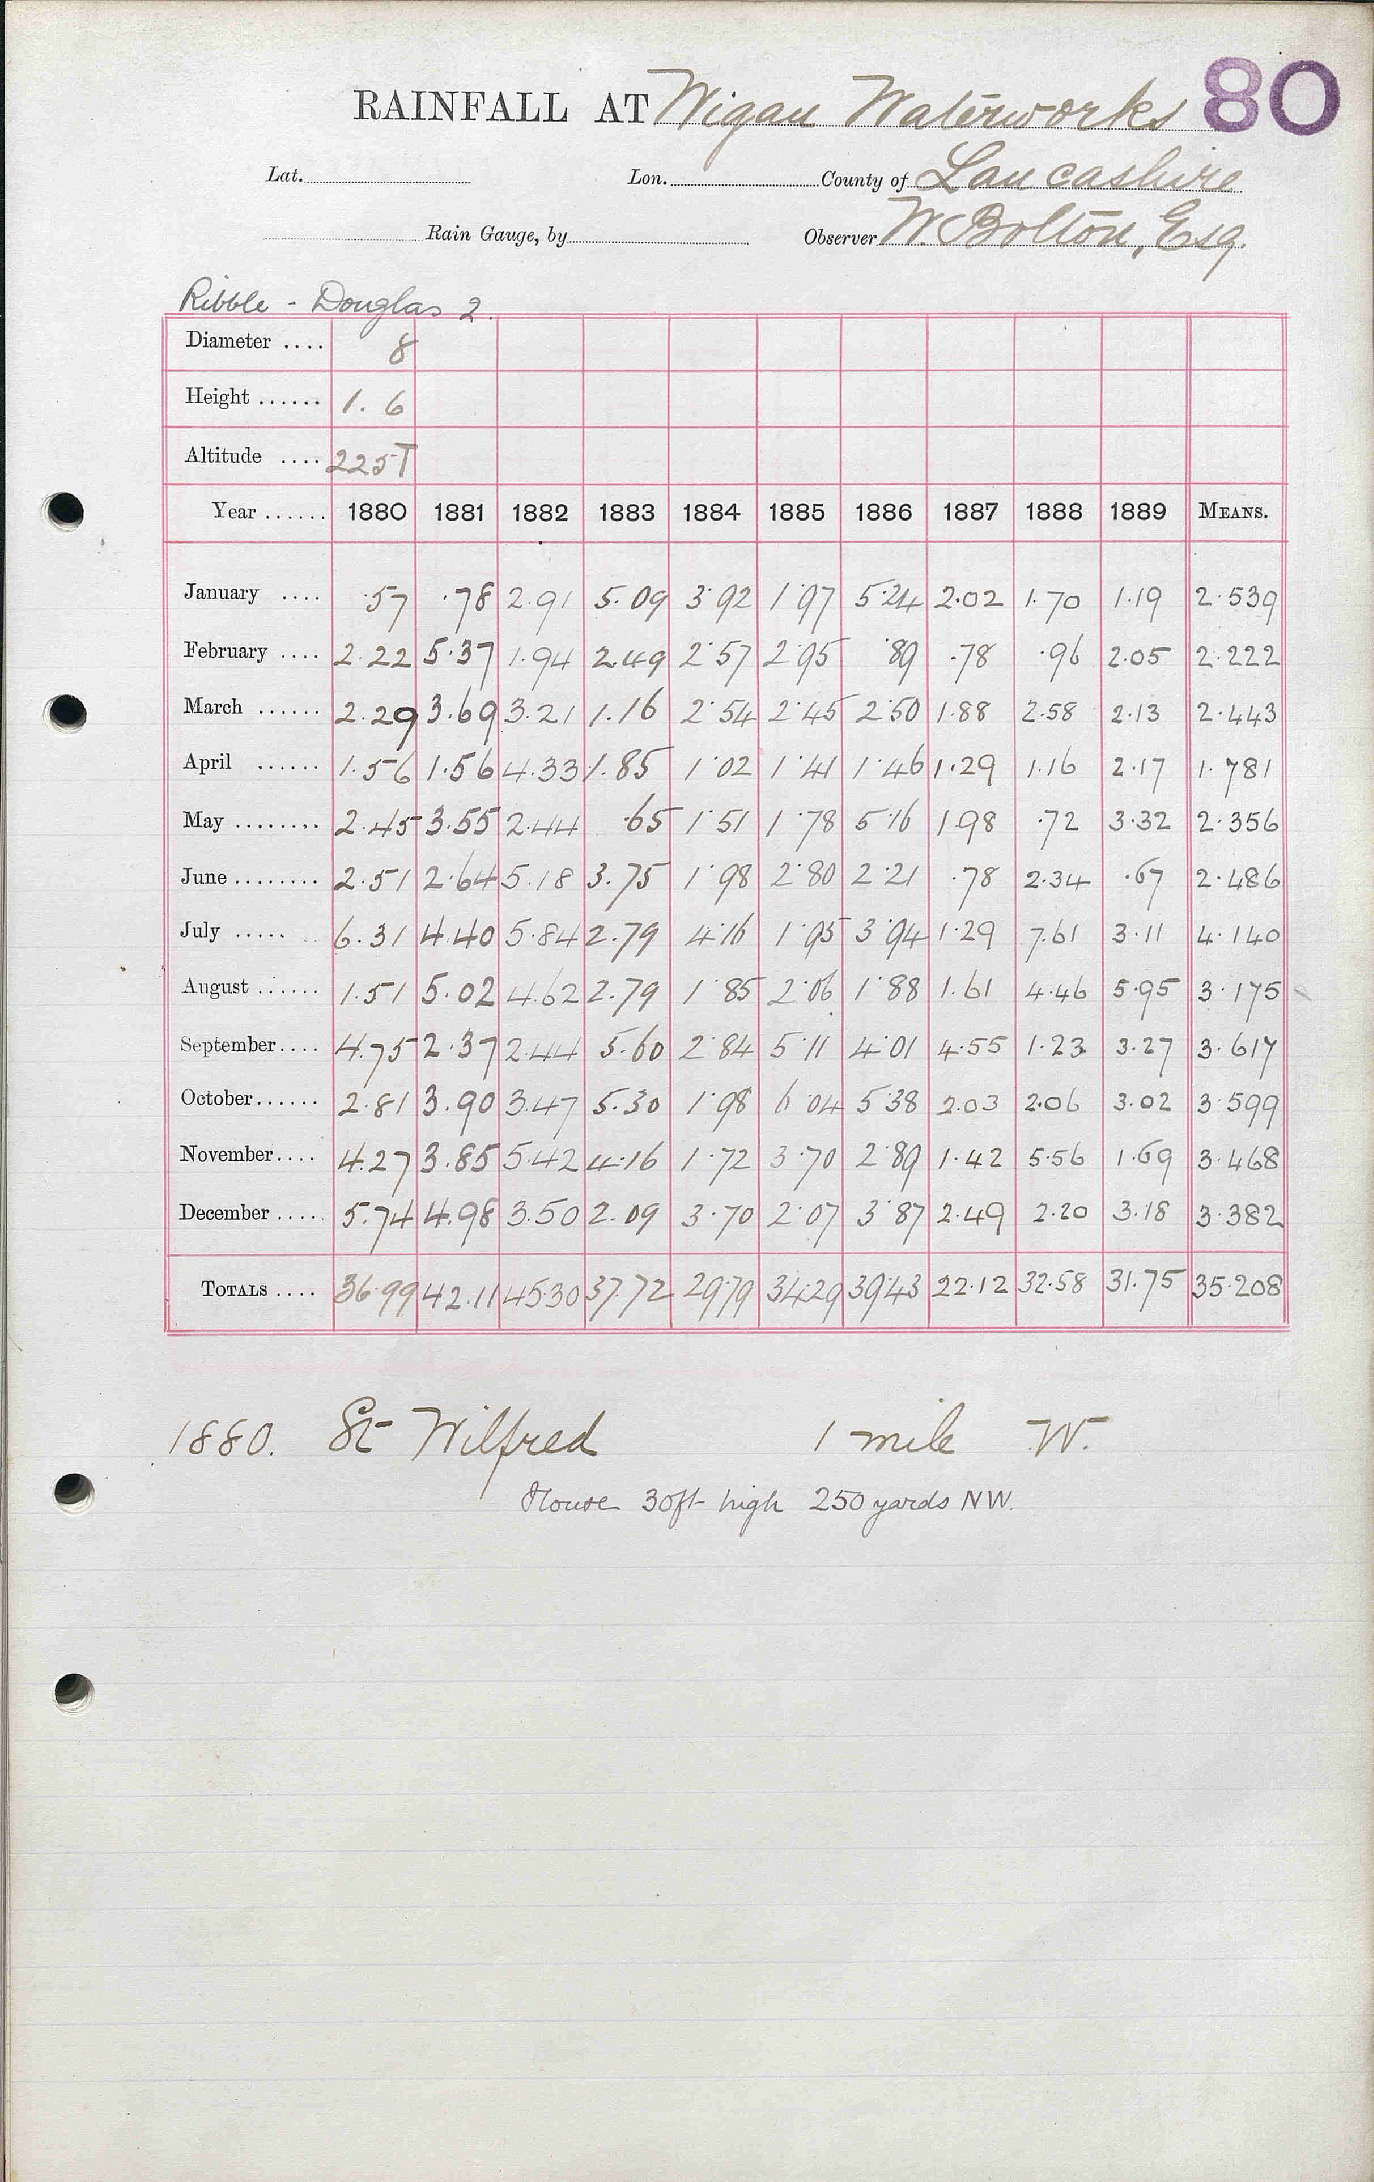 80
RAINFALL AT Wigan Waterworks
Lat. Lon. County of Lancashire
Rain Gauge, by Observer W. Bolton, Esq.
Ribble - Douglas 2.
Diameter .... 8
Height ...... 1. 6
Altitude .... 225T
Year ...... 1880 1881 1882 1883 1884 1885 1886 1887 1888 1889 MEANS.
January .... .57 .78 2.91 5.09 3.92 1.97 5.24 2.02 1.70 1.19 2.539
February .... 2.22 5.37 1.94 2.49 2.57 2.95 .89 .78 .96 2.05 2.222
March ...... 2.29 3.69 3.21 1.16 2.54 2.45 2.50 1.88 2.58 2.13 2.443
April ...... 1.56 1.56 4.33 1.85 1.02 1.41 1.46 1.29 1.16 2.17 1.781
May ........ 2.45 3.55 2.44 .65 1.51 1.78 5.16 1.98 .72 3.32 2.356
June ........ 2.51 2.64 5.18 3.75 1.98 2.80 2.21 .78 2.34 .67 2.486
July ..... 6.31 4.40 5.84 2.79 4.16 1.95 3.94 1.29 7.61 3.11 4.140
August ...... 1.51 5.02 4.62 2.79 1.85 2.06 1.88 1.61 4.46 5.95 3.175
September.... 4.75 2.37 2.44 5.60 2.84 5.11 4.01 4.55 1.23 3.27 3.617
October...... 2.81 3.90 3.47 5.30 1.98 6.04 5.38 2.03 2.06 3.02 3.599
November.... 4.27 3.85 5.42 4.16 1.72 3.70 2.89 1.42 5.56 1.69 3.468
December ..... 5.74 4.98 3.50 2.09 3.70 2.07 3.87 2.49 2.20 3.18 3.382
TOTALS .... 36.99 42.11 45.30 37.72 29.79 34.29 39.43 22.12 32.58 31.75 35.208
1880. St Wilfred 1 mile W.
House 30ft high 250 yards NW.